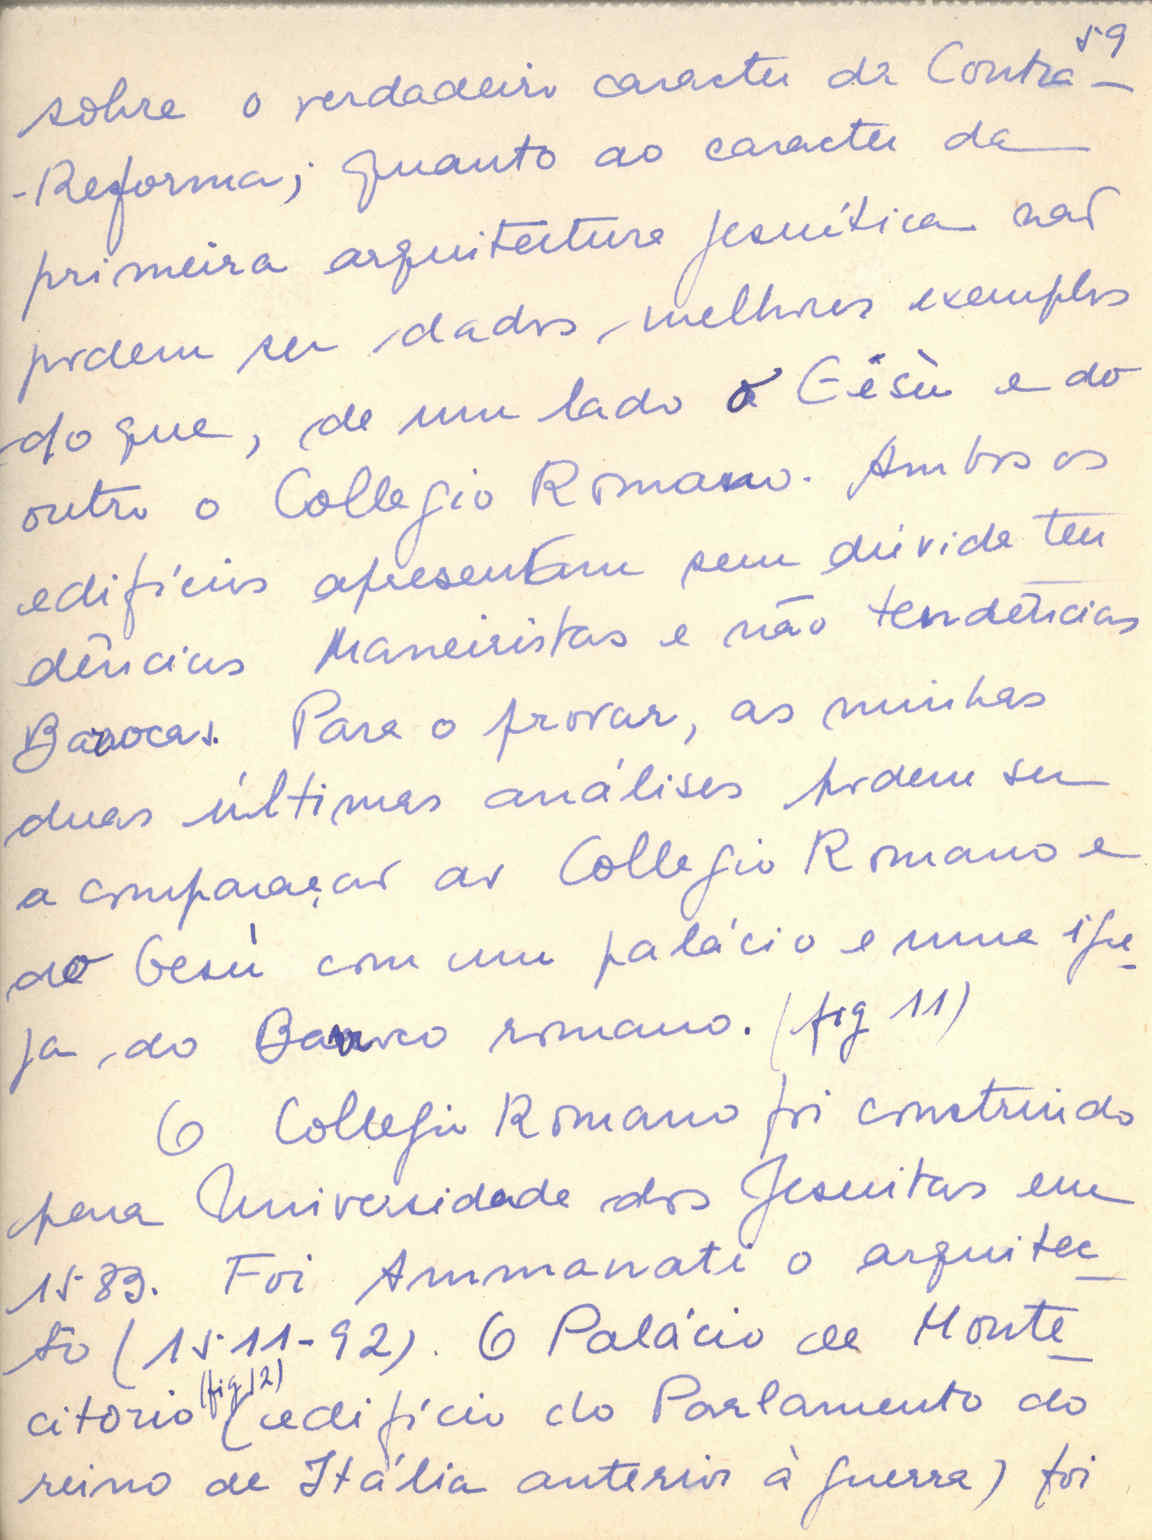 59
sobre o verdadeiro caracter da Contra-
-Reforma; quanto ao caracter da
primeira arquitectura jesuítica não
podem ser dados melhores exemplos
do que, de um lado o Gèsù e do
outro o Collegio Romano. Ambos os
edifícios apresentam sem dúvida ten
dências Maneiristas e não tendências
Barocas. Para o provar, as minhas
duas últimas análises podem ser
a comparação ao Collegio Romano e
do Gesù com um palácio e uma igre-
ja do Barroco romano. (fig 11)
O Collegio Romano foi construido
para Universidade dos Jesuitas em
1583. Foi Ammanati o arquitec-
to (1511-92). O Palácio de Monte-
citorio (fig 12) (edifício do Parlamento do
reino de Itália anterior à guerra) foi